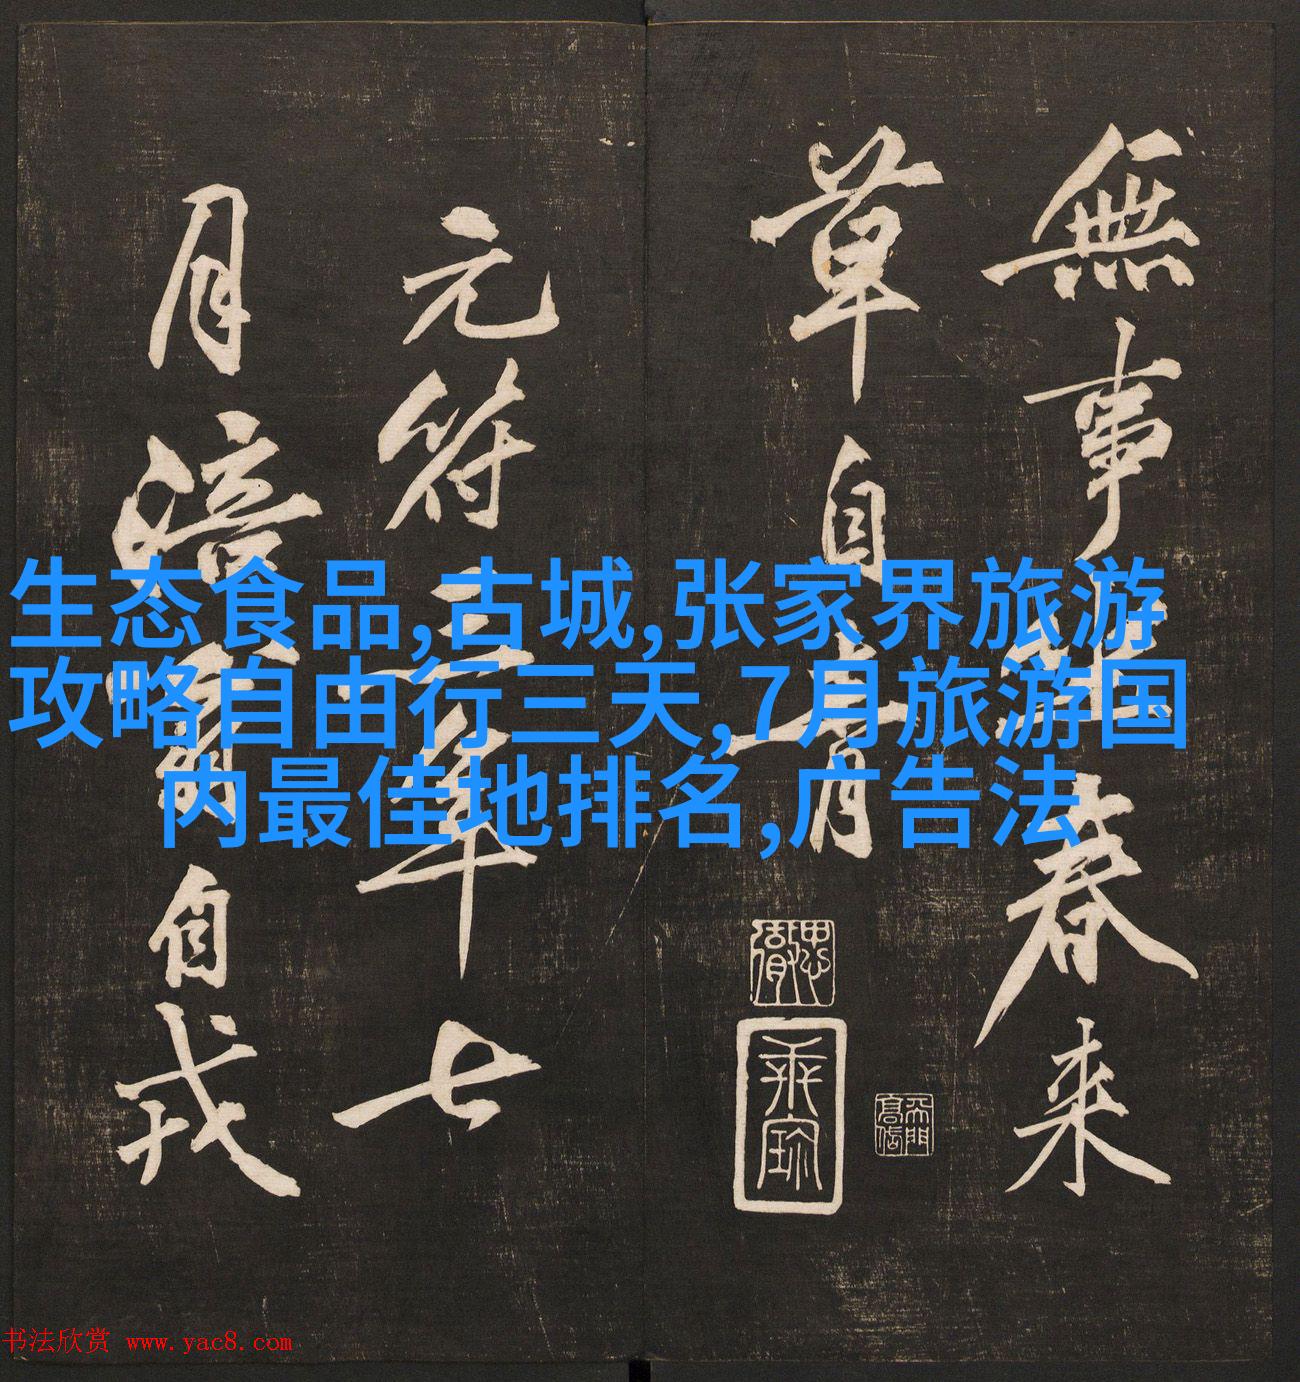 無事坐春来
草自青
元符三年七
月涪翁自戎
生态食品,古城,张家界旅游
攻略自由行三天,7月旅游国
内最佳地排名,广告法
书法欣赏 www.yac8.com